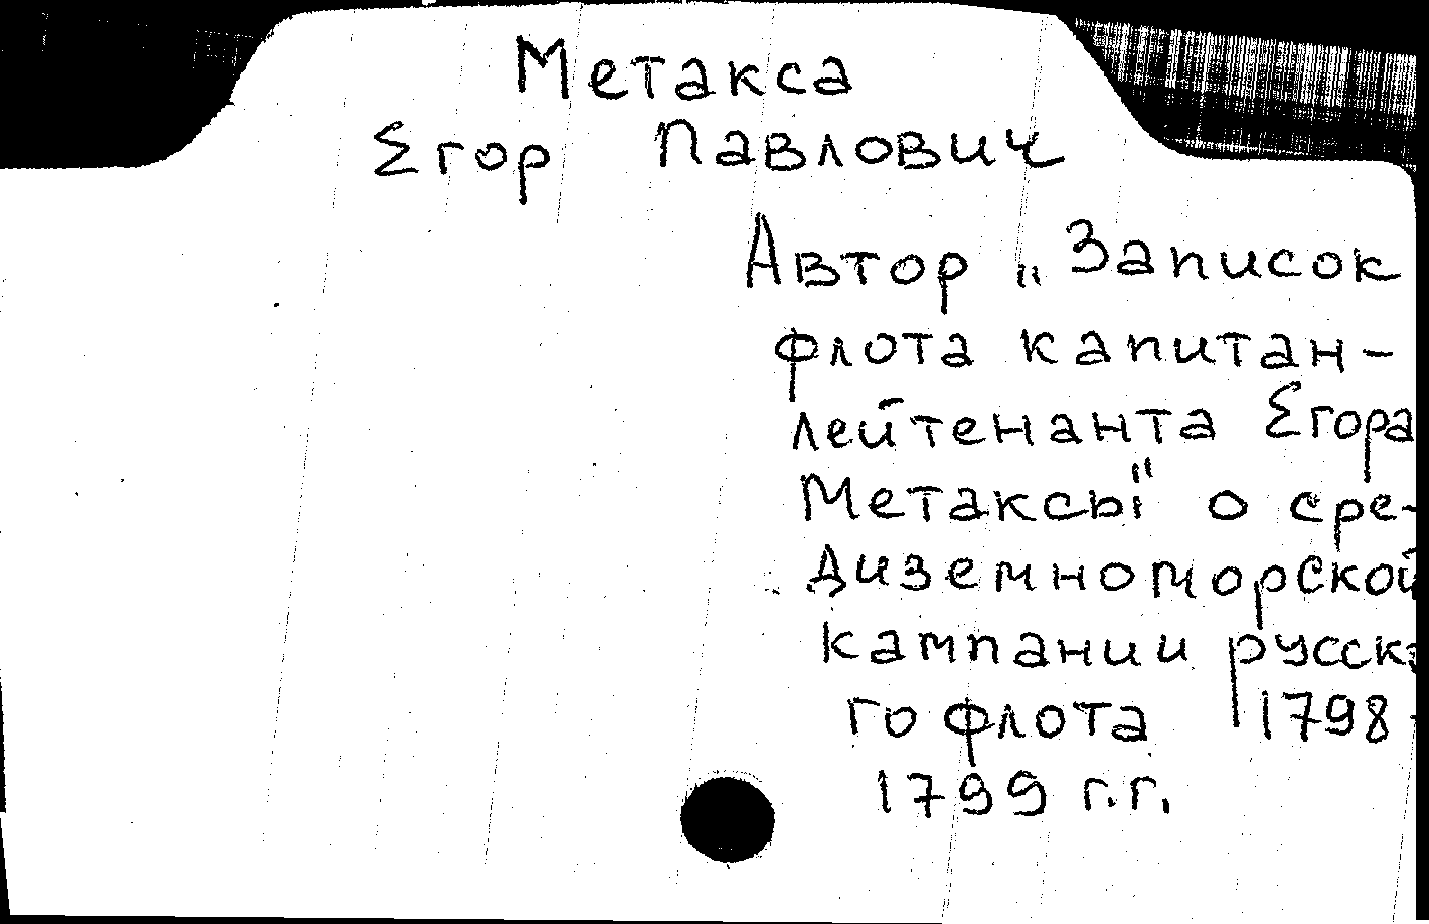 Метакса
Егор Павлович
Автор „Записок
флота капитан-
лейтенанта Егора
Метаксы" о сре-
диземноморской
кампании русско
го флота 1798 -
1799 г.г.